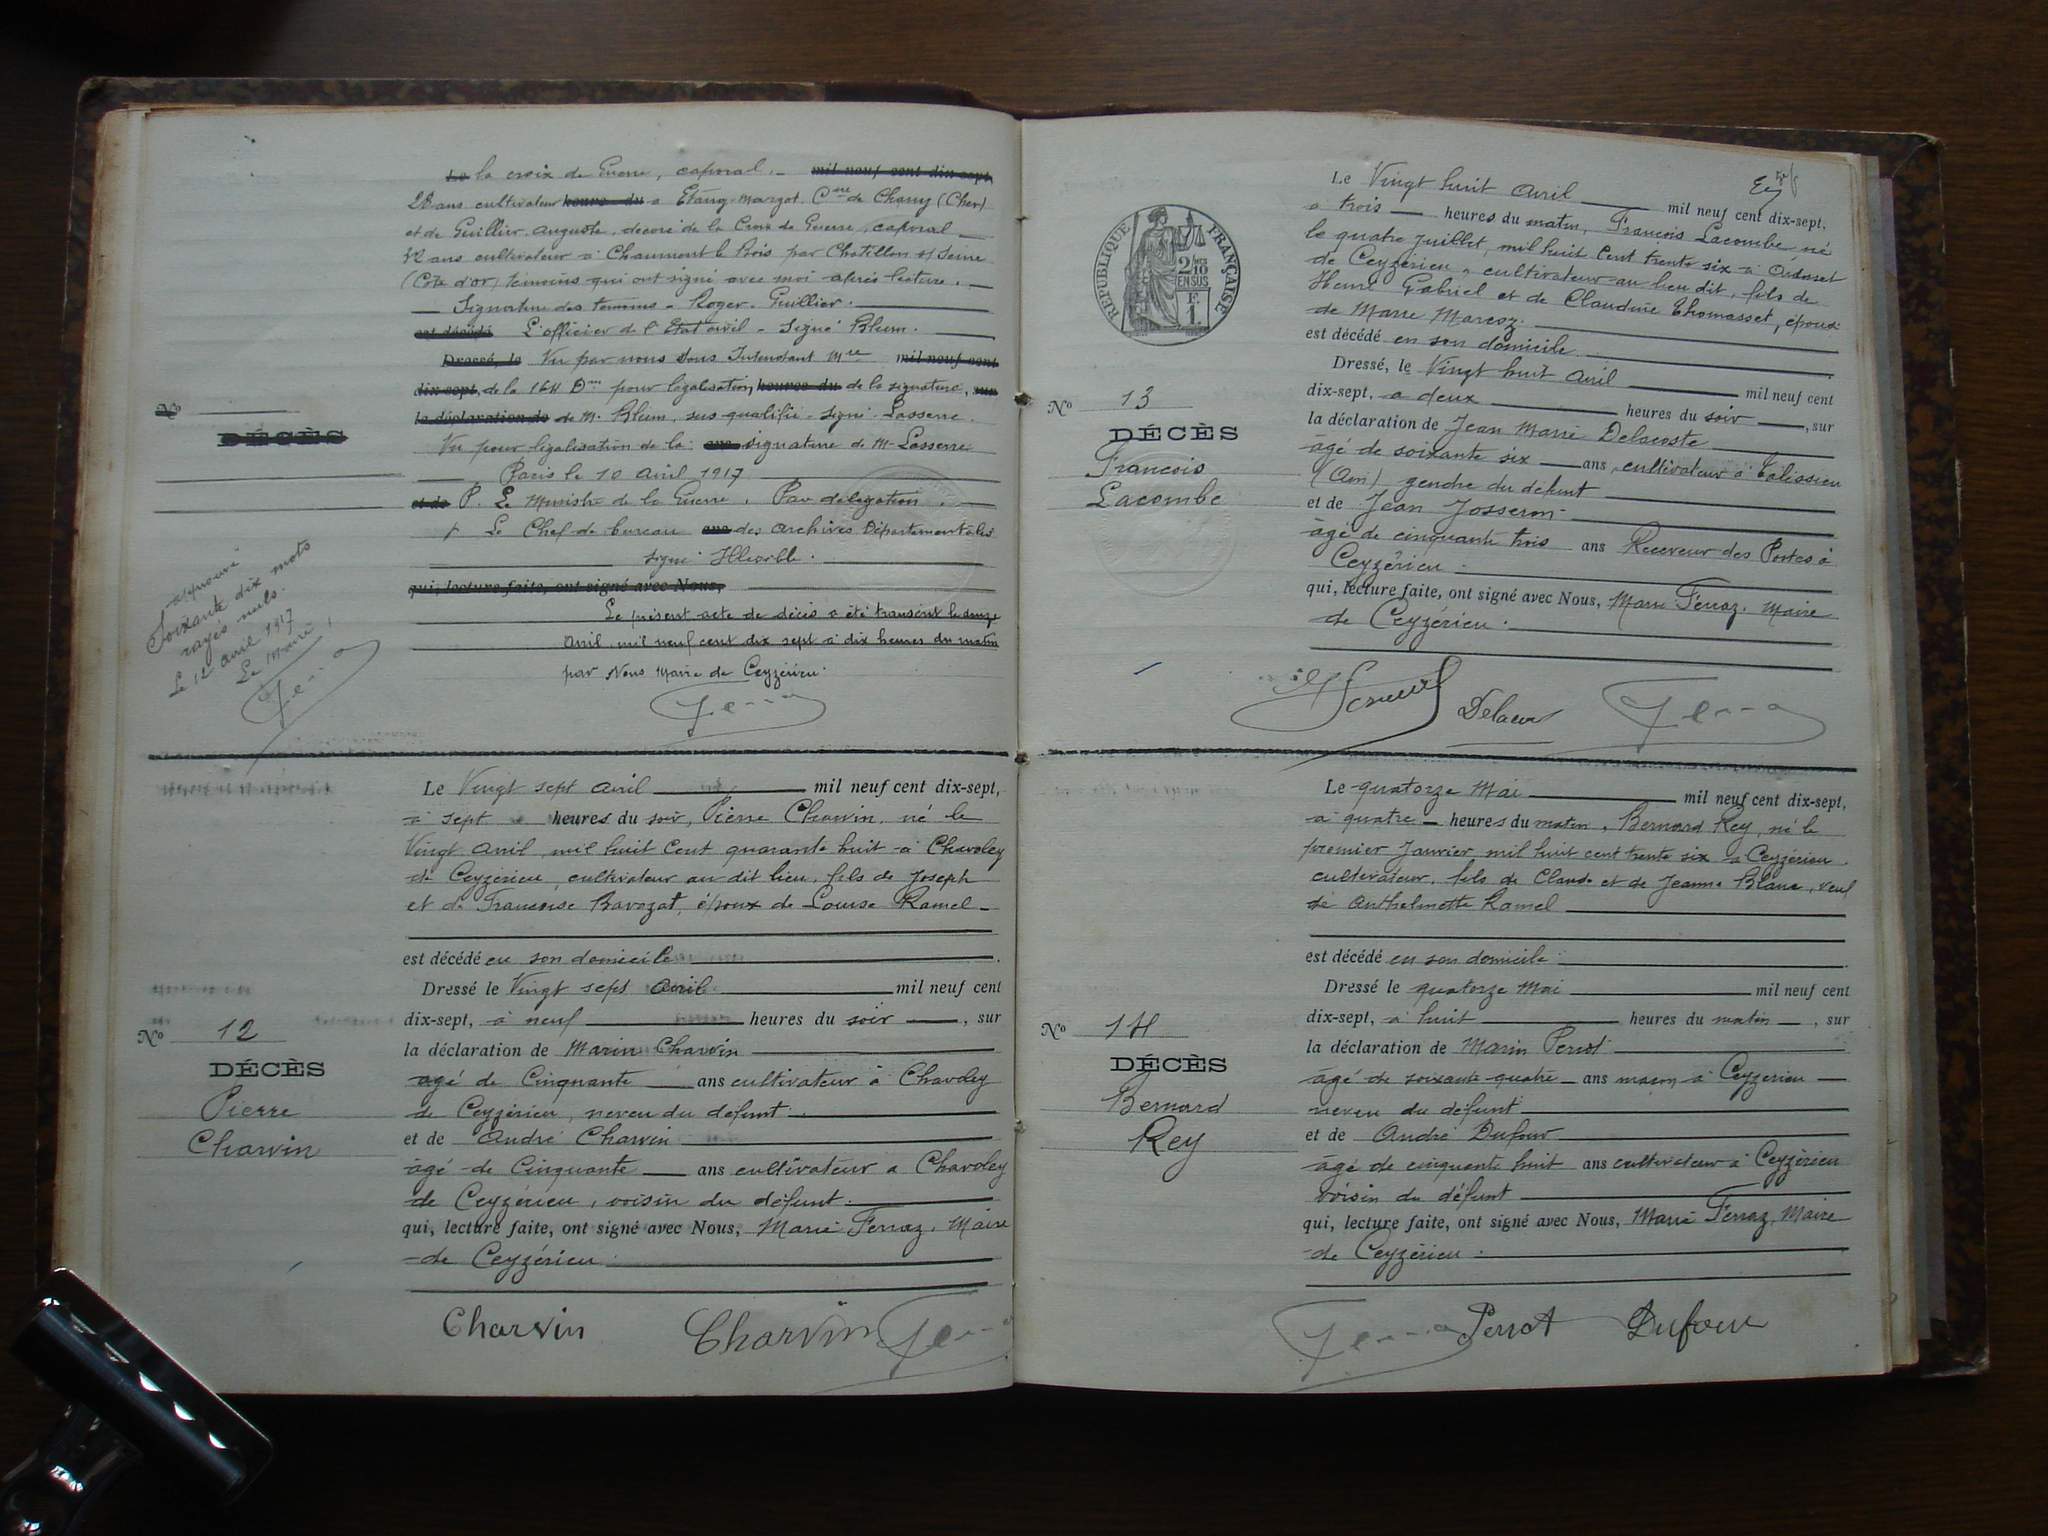 Le la croix de Guerre, caporal. mil neuf cent dix-sept,
28 ans cultivateur heure du à Etang-Margot Cne de Charny (Cher)
et de Guillier Auguste, décoré de la Croix de Guerre, caporal
42 ans cultivateur à Chaumont le Bois par Chatillon s/ Seine
(Côte d'or) témoins qui ont signé avec moi après lecture.
Signature des témoins - Roger. Guillier.
est décédé L'officier de l'Etat civil - Signé Blum.
Dressé, le Vu par nous Sous Intendant Mre mil neuf cent
dix-sept, de la 164 Don pour légalisation, heures du de la signature, sur
la déclaration de de M. Blum, sus-qualifié - signé Lasserre.
Vu pour légalisation de la ans signature de M. Lasserre
Paris le 10 avril 1917
et de P. Le Ministre de la Guerre. Par délégation.
Le Chef de bureau ans des Archives Départementales
signé
qui, lecture faite, ont signé avec Nous,
Le présent acte de décès a été transcrit le douze
avril mil neuf cent dix sept à dix heures du matin
par Nous Maire de Ceyzérieu.
No
DÉCÈS
approuvé
Soixante dix mots
rayés nuls.
Le 12 avril 1917
Le Maire,
Le Vingt sept avril mil neuf cent dix-sept,
à sept heures du soir, Pierre Charvin, né le
Vingt avril mil huit cent quarante huit à Chavoley
de Ceyzérieu, cultivateur au dit lieu, fils de Joseph
et de Françoise Bavozat, époux de Louise Ramel
est décédé en son domicile
Dressé le Vingt sept avril mil neuf cent
dix-sept, à neuf heures du soir, sur
la déclaration de Marin Charvin
âgé de Cinquante ans cultivateur à Chavoley
de Ceyzérieu, neveu du défunt
et de André Charvin
âgé de Cinquante ans cultivateur à Chavoley
de Ceyzérieu, voisin du défunt.
qui, lecture faite, ont signé avec Nous, Marie Ferraz, Maire
de Ceyzérieu
No 12
DÉCÈS
Pierre
Charvin
Charvin Charvin
Le Vingt huit avril mil neuf cent dix-sept,
à trois heures du matin, François Lacombe né
le quatre juillet, mil huit cent trente six à
de Ceyzérieu, cultivateur au lieu dit, fils de
Henri Gabriel et de Claudine Thomasset, époux
de Marie Marcoz.
est décédé en son domicile
Dressé, le Vingt huit avril mil neuf cent
dix-sept, à deux heures du soir, sur
la déclaration de Jean Marie Delacoste
âgé de soixante six ans, cultivateur à Talissieu
(Ain) gendre du défunt
et de Jean Josseron
âgé de cinquante trois ans Receveur des Postes à
Ceyzérieu.
qui, lecture faite, ont signé avec Nous, Marie Ferraz, Maire
de Ceyzérieu.
RÉPUBLIQUE FRANÇAISE
2/10 MES
EN SUS
F.
1.
No 13
DÉCÈS
François
Lacombe
Le quatorze Mai mil neuf cent dix-sept,
à quatre heures du matin, Bernard Rey, né le
premier janvier mil huit cent trente six à Ceyzérieu
cultivateur, fils de Claude et de Jeanne Blanc, veuf
de Anthelmette Ramel
est décédé en son domicile
Dressé le quatorze Mai mil neuf cent
dix-sept, à huit heures du matin, sur
la déclaration de Marin Perrot
âgé de soixante quatre ans maçon à Ceyzérieu
neveu du défunt
et de André Dufour
âgé de cinquante huit ans cultivateur à Ceyzérieu
voisin du défunt
qui, lecture faite, ont signé avec Nous, Marie Ferraz, Maire
de Ceyzérieu.
No 14
DÉCÈS
Bernard
Rey
Perrot Dufour